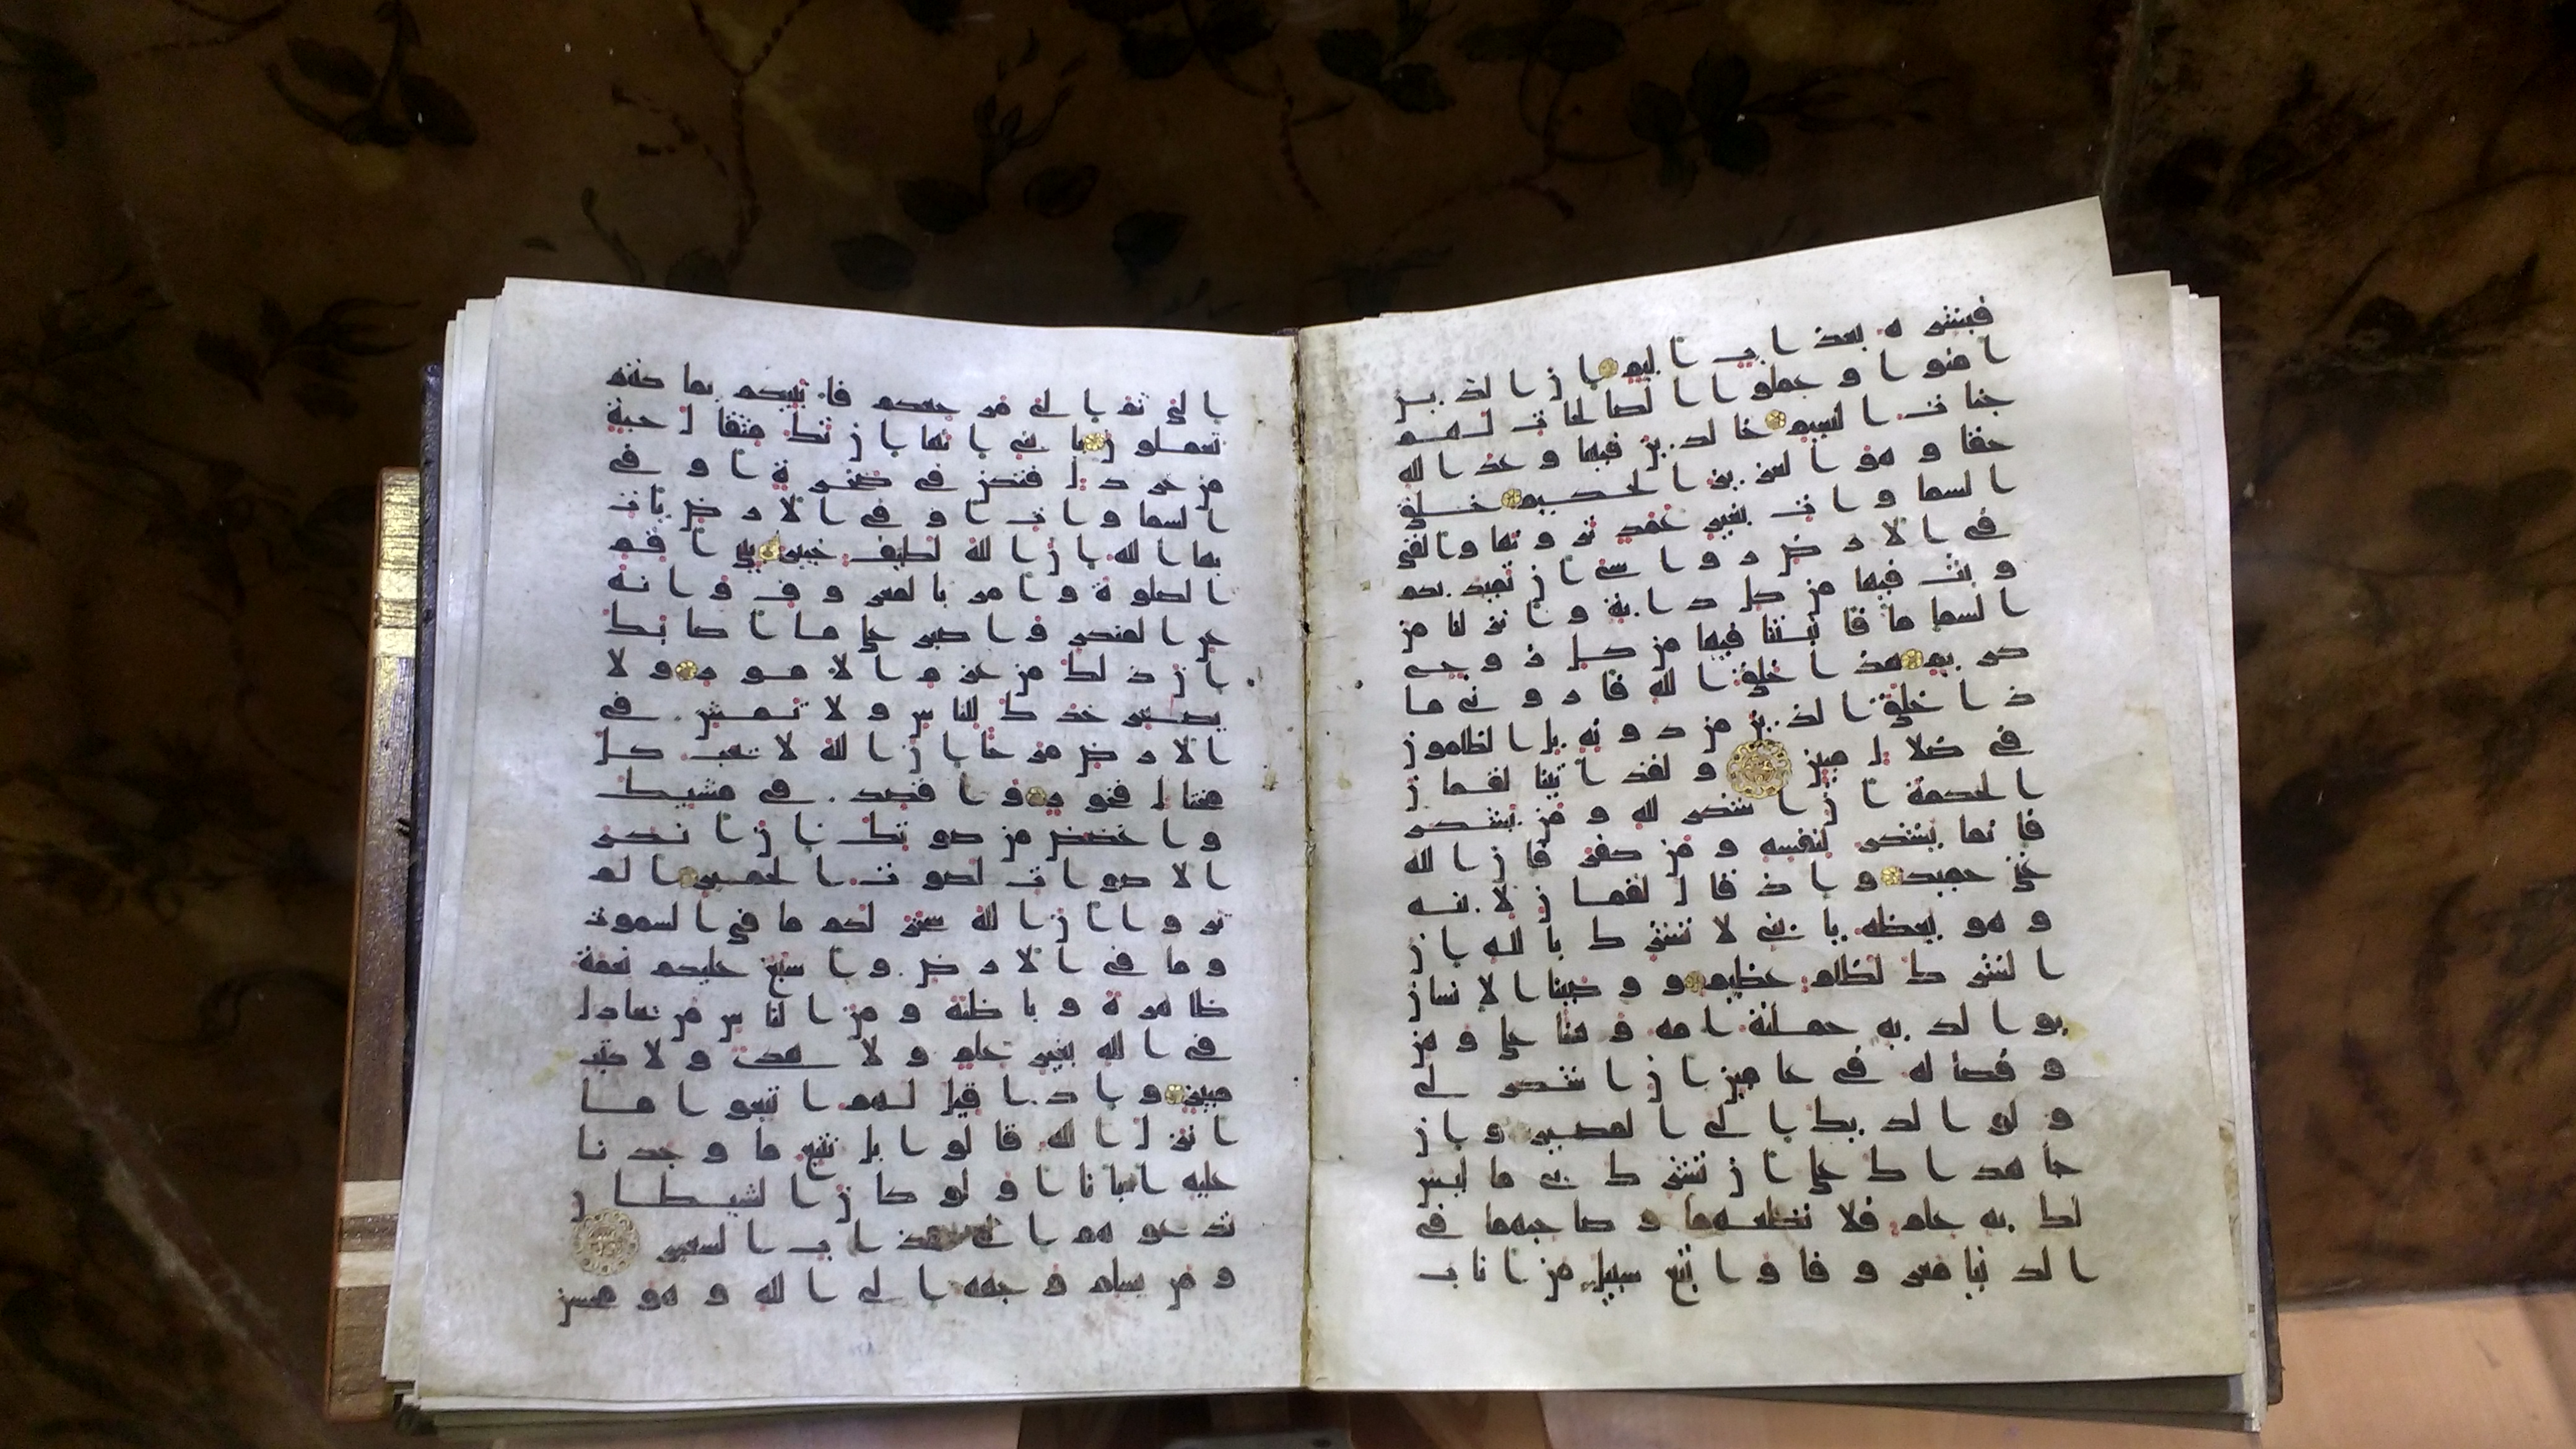 فبشره بعذاب اليم ان الذين
امنوا وعملوا الصالحات لهم
جنات النعيم خالدين فيها وعد الله
حقا وهو العزيز الحكيم خلق
السماوات بغير عمد ترونها والقى
في الارض رواسي ان تميد بكم
وبث فيها من كل دابة وانزلنا من
السما ما فانبتنا فيها من كل زوج
كريم هذا خلق الله فاروني ما
ذا خلق الذين من دونه بل الظالمون
في ضلال مبين ولقد اتينا لقمان
الحكمة ان اشكر لله ومن يشكر
فانما يشكر لنفسه ومن كفر فان الله
غني حميد واذ قال لقمان لابنه
وهو يعظه يا بني لا تشرك بالله ان
الشرك لظلم عظيم ووصينا الانسان
بوالديه حملته امه وهنا على وهن
وفصاله في عامين ان اشكر لي
ولوالديك الي المصير وان
جاهداك على ان تشرك بي ما ليس
لك به علم فلا تطعهما وصاحبهما في
الدنيا معروفا واتبع سبيل من اناب
الي ثم الي مرجعكم فانبيكم بما كنتم
تعملون يا بني انها ان تك مثقال حبة
من خردل فتكن في صخرة او في
السماوات او في الارض يات
بها الله ان الله لطيف خبير يبني اقم
الصلوة وامر بالمعروف وانه
عن المنكر واصبر على ما اصابك
ان ذلك من عزم الامور ولا
تصعر خدك للناس ولا تمش في
الارض مرحا ان الله لا يحب كل
مختال فخور واقصد في مشيك
واغضض من صوتك ان انكر
الاصوات لصوت الحمير الم
تروا ان الله سخر لكم ما في السموت
وما في الارض واسبغ عليكم نعمة
ظاهرة وباطنة ومن الناس من يجادل
في الله بغير علم ولا هدى ولا كتب
منير واذا قيل لهم اتبعوا ما
انزل الله قالوا بل نتبع ما وجدنا
عليه ابانا اولو كان الشيطان
يدعوهم الى عذاب السعير
ومن يسلم وجهه الى الله وهو محسن